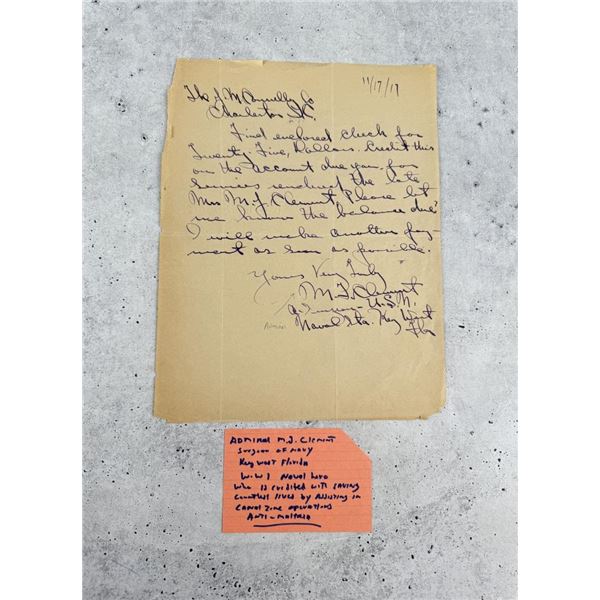 11/17/17
The J M Connelly Co
Charleston S.C.
Find enclosed check for
Twenty-Five, Dollars. Credit this
on the account due you for
services rendered the late
Mrs M. J. Clement, Please let
me know the balance due?
I will make another pay-
ment as soon as possible.
Yours Very Truly
M J Clement
U.S.N.
Naval Sta. Key West
Fla
ADMIRAL M. J. Clement
Surgeon of Navy
Key West Florida
WW I Naval hero
Who is credited with saving
countless lives by Assisting in
CANAL Zone operations
ANTI-MALARIA